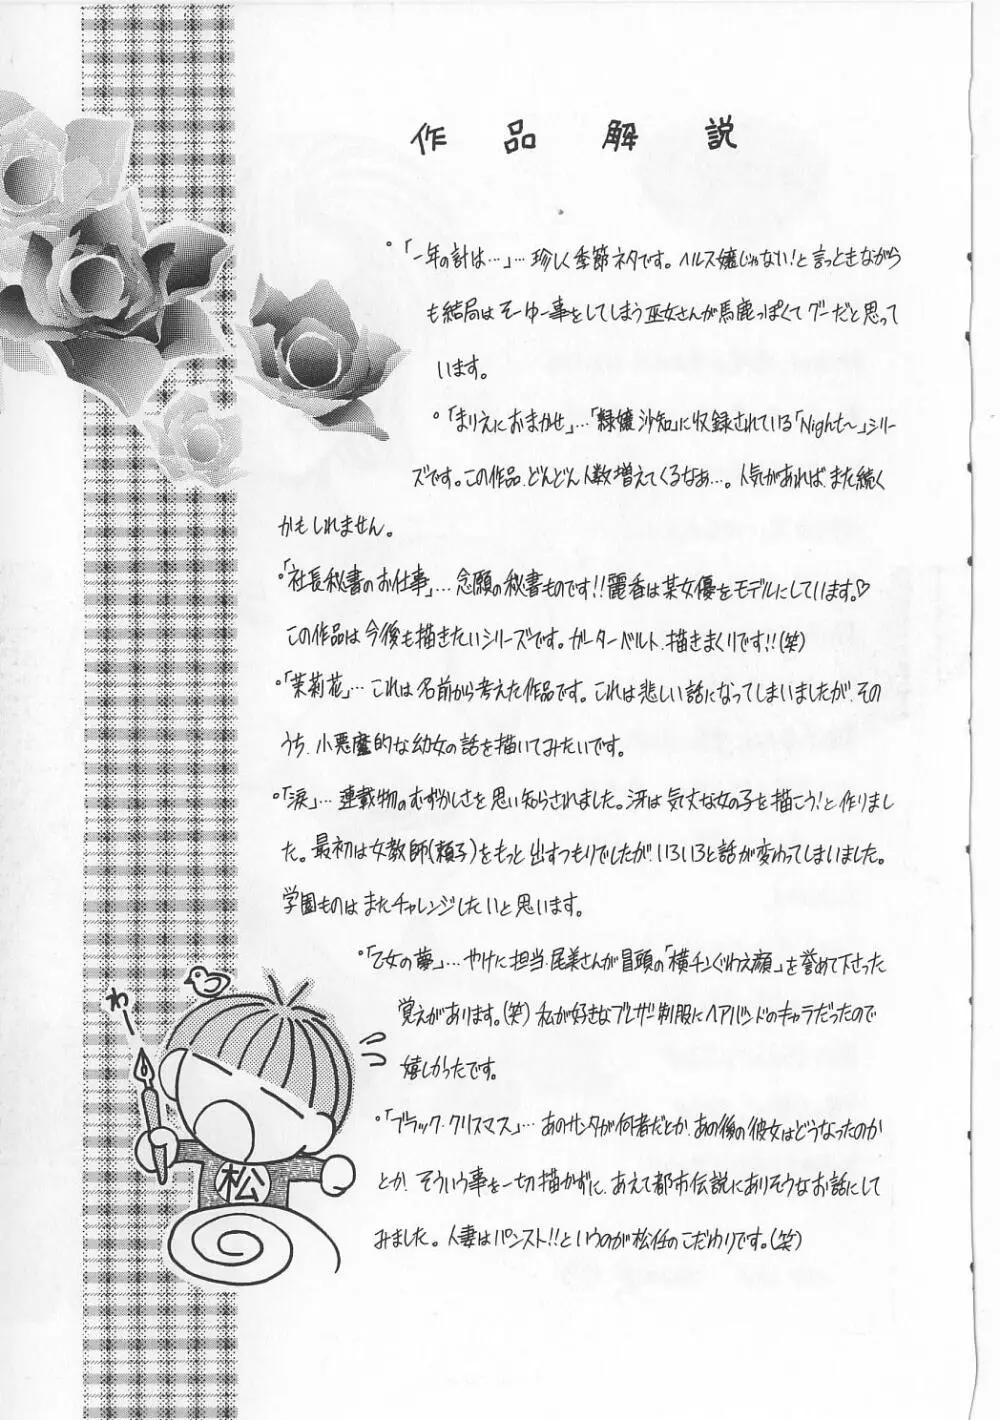 作品解説
・「一年の計は…」…珍しく季節ネタです。ヘルス嬢じゃない!と言っときながら
も結局はそーゆー事をしてしまう巫女さんが馬鹿っぽくてグーだと思って
います。
・「まりえにおまかせ」…「隷嬢沙知」に収録されている「Night〜」シリー
ズです。この作品、どんどん人数増えてくるなぁ…。人気があれば、また続く
かもしれません。
・「社長秘書のお仕事」…念願の秘書ものです!!麗香は某女優をモデルにしています♡
この作品は今後も描きたいシリーズです。ガーターベルト、描きまくりです!!(笑)
・「茉莉花」…これは名前から考えた作品です。これは悲しい話になってしまいましたが、その
うち、小悪魔的な幼女の話を描いてみたいです。
・「涙」…連載物のむずかしさを思い知らされました。冴は気丈な女の子を描こう!と作りまし
た。最初は女教師(頼子)をもっと出すつもりでしたが、いろいろと話が変わってしまいました。
学園ものはまたチャレンジしたいと思います。
・「乙女の夢」…やけに担当・尾美さんが冒頭の「横チンぐわえ顔」を誉めて下さった
覚えがあります。(笑)私が好きなブレザー制服にヘアバンドのキャラだったので
嬉しかったです。
・「ブラック・クリスマス」…あのサンタが何者だとか、あの後の彼女はどうなったのか
とか、そういう事を一切描かずに、あえて都市伝説にありそうなお話にして
みました。人妻はパンスト!!というのが松任のこだわりです。(笑)
わー
松